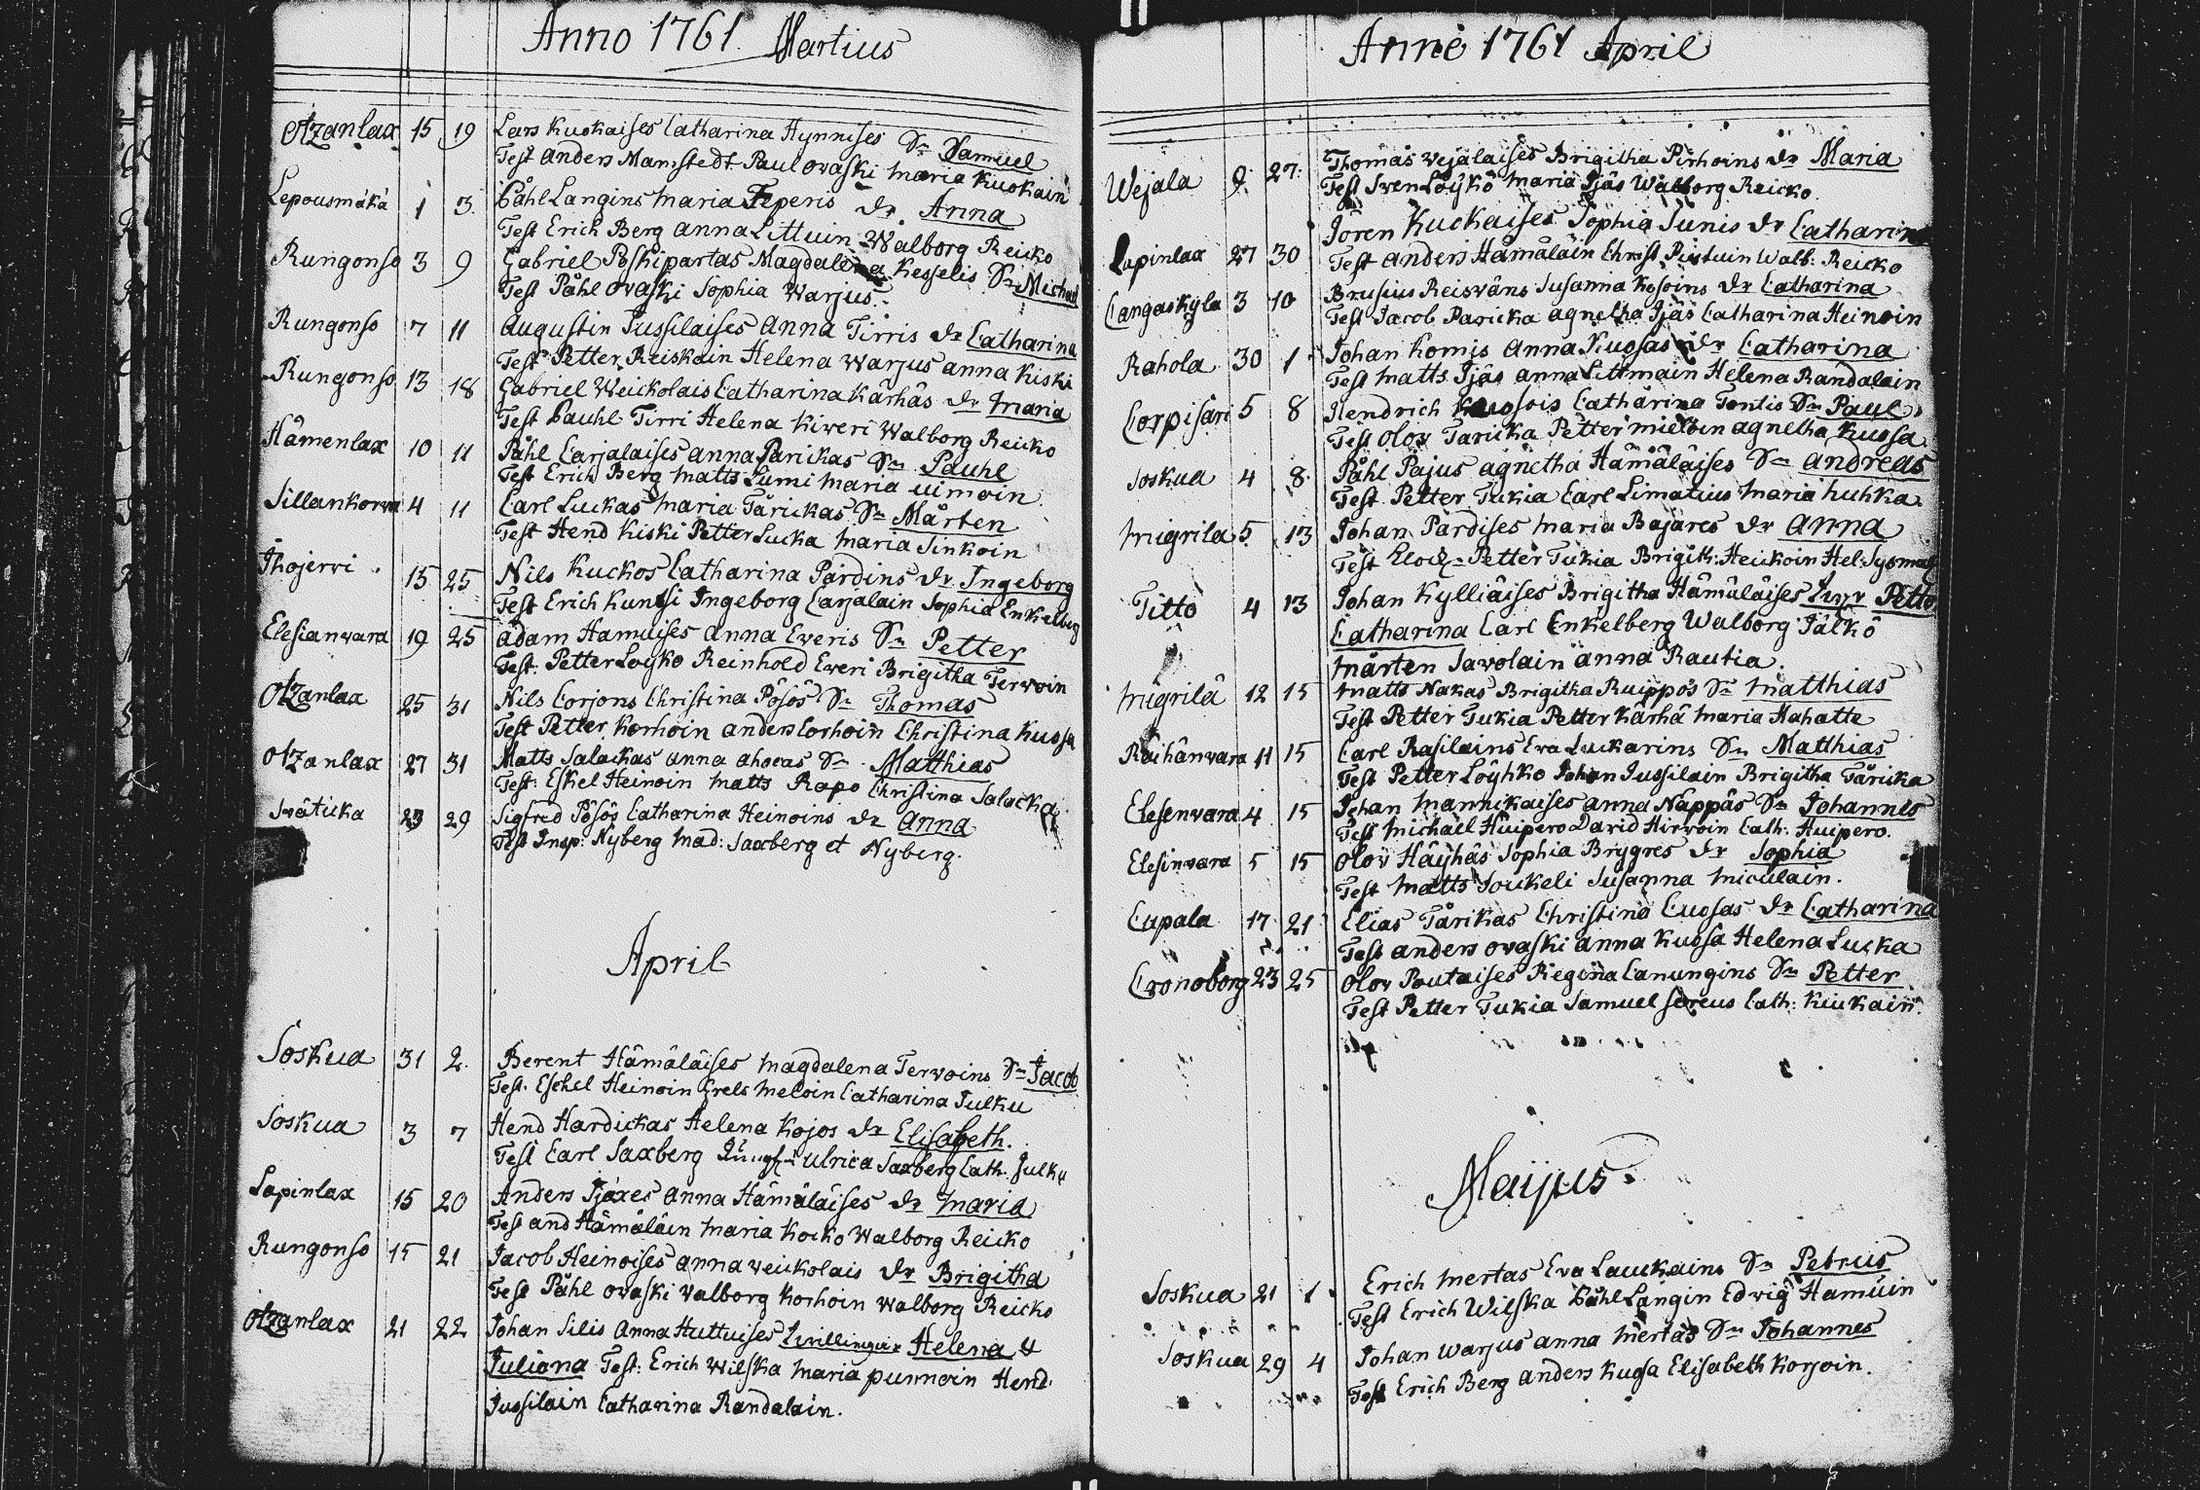 Anno 1761. Martius
Otzanlax 15 19 Lars Kuokaises Catharina Hynnises Sn Samuel
Test Anders Manstedt Paul Ovaski Maria Kuokain
Lepousmäkä 1 3. Påhl Langins Maria Teperis dr Anna
Test Erich Berg Anna Littuin Walborg Reicko
Rungonso 3 9 Gabriel Poskipartas Magdalena Kesselis Sn Michael
Test Påhl Ovaski Sophia Warjus.
Rungonso 7 11 Augustin Jussilaises Anna Tirris dr Catharina
Test Petter Reiskain Helena Warjus Anna Kiski
Rungonso 13 18 Gabriel Weickolais Catharina Kärhäs dr Maria
Test Pauhl Tirri Helena Kiweri Walborg Reicko
Hämenlax 10 11 Påhl Carjalaises Anna Parickas Sn Pauhl
Test Erich Berg Matts Lumi Maria Uimoin
Sillankorwa 4 11 Carl Luckas Maria Tärickas Sn Mårten
Test Hend Kiski Petter Lucka Maria Sinkoin
Ihojerwi 15 25 Nils Kuckos Catharina Pärdins dr Ingeborg
Test Erich Kunsi Ingeborg Carjalain Sophia Enkelberg
Elesianwara 19 25 Adam Hamuises Anna Eweris Sn Petter
Test. Petter Loyko Reinhold Eweri Brigitha Terwoin
Otzanlax 25 31 Nils Corjons Christina Pösös Sn Thomas
Test Petter Korhoin Anders Corhoin Christina Kuosa
Otzanlax 27 31 Matts Salackas Anna Ahocas Sn Matthias
Test. Eskel Heinoin Matts Rapo Christina Salacka
Swäticka 23 29 Sigfred Pösös Catharina Heinoins dr Anna
Test Insp: Nyberg Mad: Saxberg et Nyberg.
April
Soskua 31 2. Berent Hämäläises Magdalena Terwoins Sn Jacob
Test. Eskel Heinoin Grels Meloin Catharina Julku
Soskua 3 7 Hend Hardickas Helena Kojos dr Elisabeth.
Test Carl Saxberg Ulrica Saxberg Cath. Julku
Lapinlax 15 20 Anders Ijäxes Anna Hämäläises dr Maria
Test And Hämäläin Maria Kocko Walborg Reicko
Rungonso 15 21 Jacob Heinoises Anna Weickolais dr Brigitha
Test Påhl Ovaski Walborg Korhoin Walborg Reicko
Otzanlax 21 22 Johan Silis Anna Huttuises Zwillingar Helena &
Juliana Test: Erich Wilska Maria Punnoin Hend.
Jussilain Catharina Randalain.
Anno 1761 April
Wejala 9. 27. Thomas Wejälaises Brigitha Pirhoins dr Maria
Test Swen Löykö Maria Ijäs Walborg Reicko.
Lapinlax 27 30 Jören Kuckaises Sophia Sunis dr Catharina
Test Anders Hämäläin Christ. Pistuin Walb: Reicko
Cangaskyla 3 10 Brusius Reiswäns Susanna Kosoins dr Catharina
Test Jacob Paricka Agnetha Ijäs Catharina Heinoin
Rahola 30 1 Johan Komis Anna Kuosas dr Catharina
Test Matts Ijäs Anna Littmain Helena Randalain
Corpisari 5 8 Hendrich Catharina Tontis Sn Paul
Test Olov Taricka Petter Mieloin Agnetha Kuosa
Soskua 4 8. Påhl Pajus Agnetha Hämäläises Sn Andreas
Test Petter Tukia Carl Limatius Maria Huhka
Migrila 5 13 Johan Pärdises Maria Bajares dr Anna
Test Klock- Petter Tukia Brigith: Heickoin Hel:
Titto 4 13 Johan Kylliäises Brigitha Hämäläises Petter
Catharina Carl Enkelberg Walborg Jälkö
Mårten Sawolain Anna Rautia.
Migrilä 12 15 Matts Nakas Brigitha Ruippos Sn Matthias
Test Petter Tukia Petter Kärhä Maria Hahatte
Räihänwara 11 15 Carl Rasilains Eva Luckarins Sn Matthias
Test Petter Löyhkö Johan Jussilain Brigitha Täricka
Elesenwara 4 15 Johan Mannikaises Anna Näppäs Sn Johannes
Test Michael Huipero David Hirwoin Cath. Huipero.
Elesinwara 5 15 Olov Häyhäs Sophia Brygres dr Sophia
Test Matts Soukeli Susanna Miculain.
Cupala 17 21 Elias Tärikas Christina Cuosas dr Catharina
Test Anders Ovaski Anna Kuosa Helena Lucka
Cronoborg 23 25 Olov Poutaises Regina Canungins Sn Petter
Test Petter Tukia Samuel Cath: Kiukain.
Maijus.
Soskua 21 1 Erich Mertas Eva Lauckains Sn Petrus
Test Erich Wilska Påhl Langin Edwig Hamuin
Soskua 29 4 Johan Warjus Anna Mertas Sn Johannes
Test Erich Berg Anders Kuosa Elisabeth Korjoin.